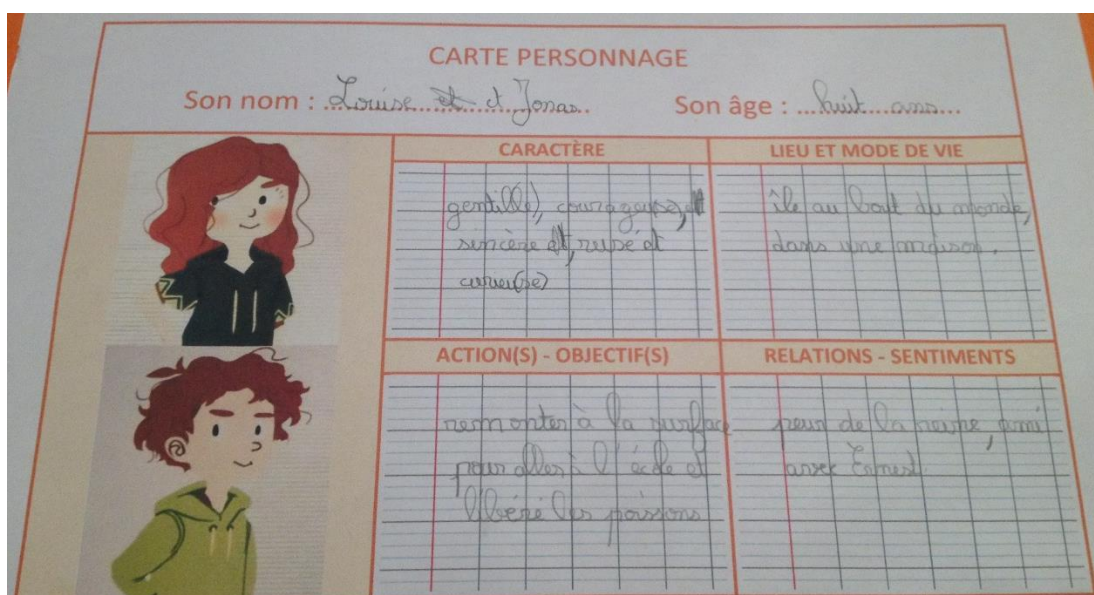 CARTE PERSONNAGE
Son nom : Louise et Jonas Son âge : huit ans
CARACTÈRE
gentil(le), courageu(se),
sincère, rusé et
curieu(se)
LIEU ET MODE DE VIE
île au bout du monde,
dans une maison.
ACTION(S) - OBJECTIF(S)
remonter à la surface
pour aller à l'école et
libéré les poissons
RELATIONS - SENTIMENTS
peur de la reine, ami
avec Ernest